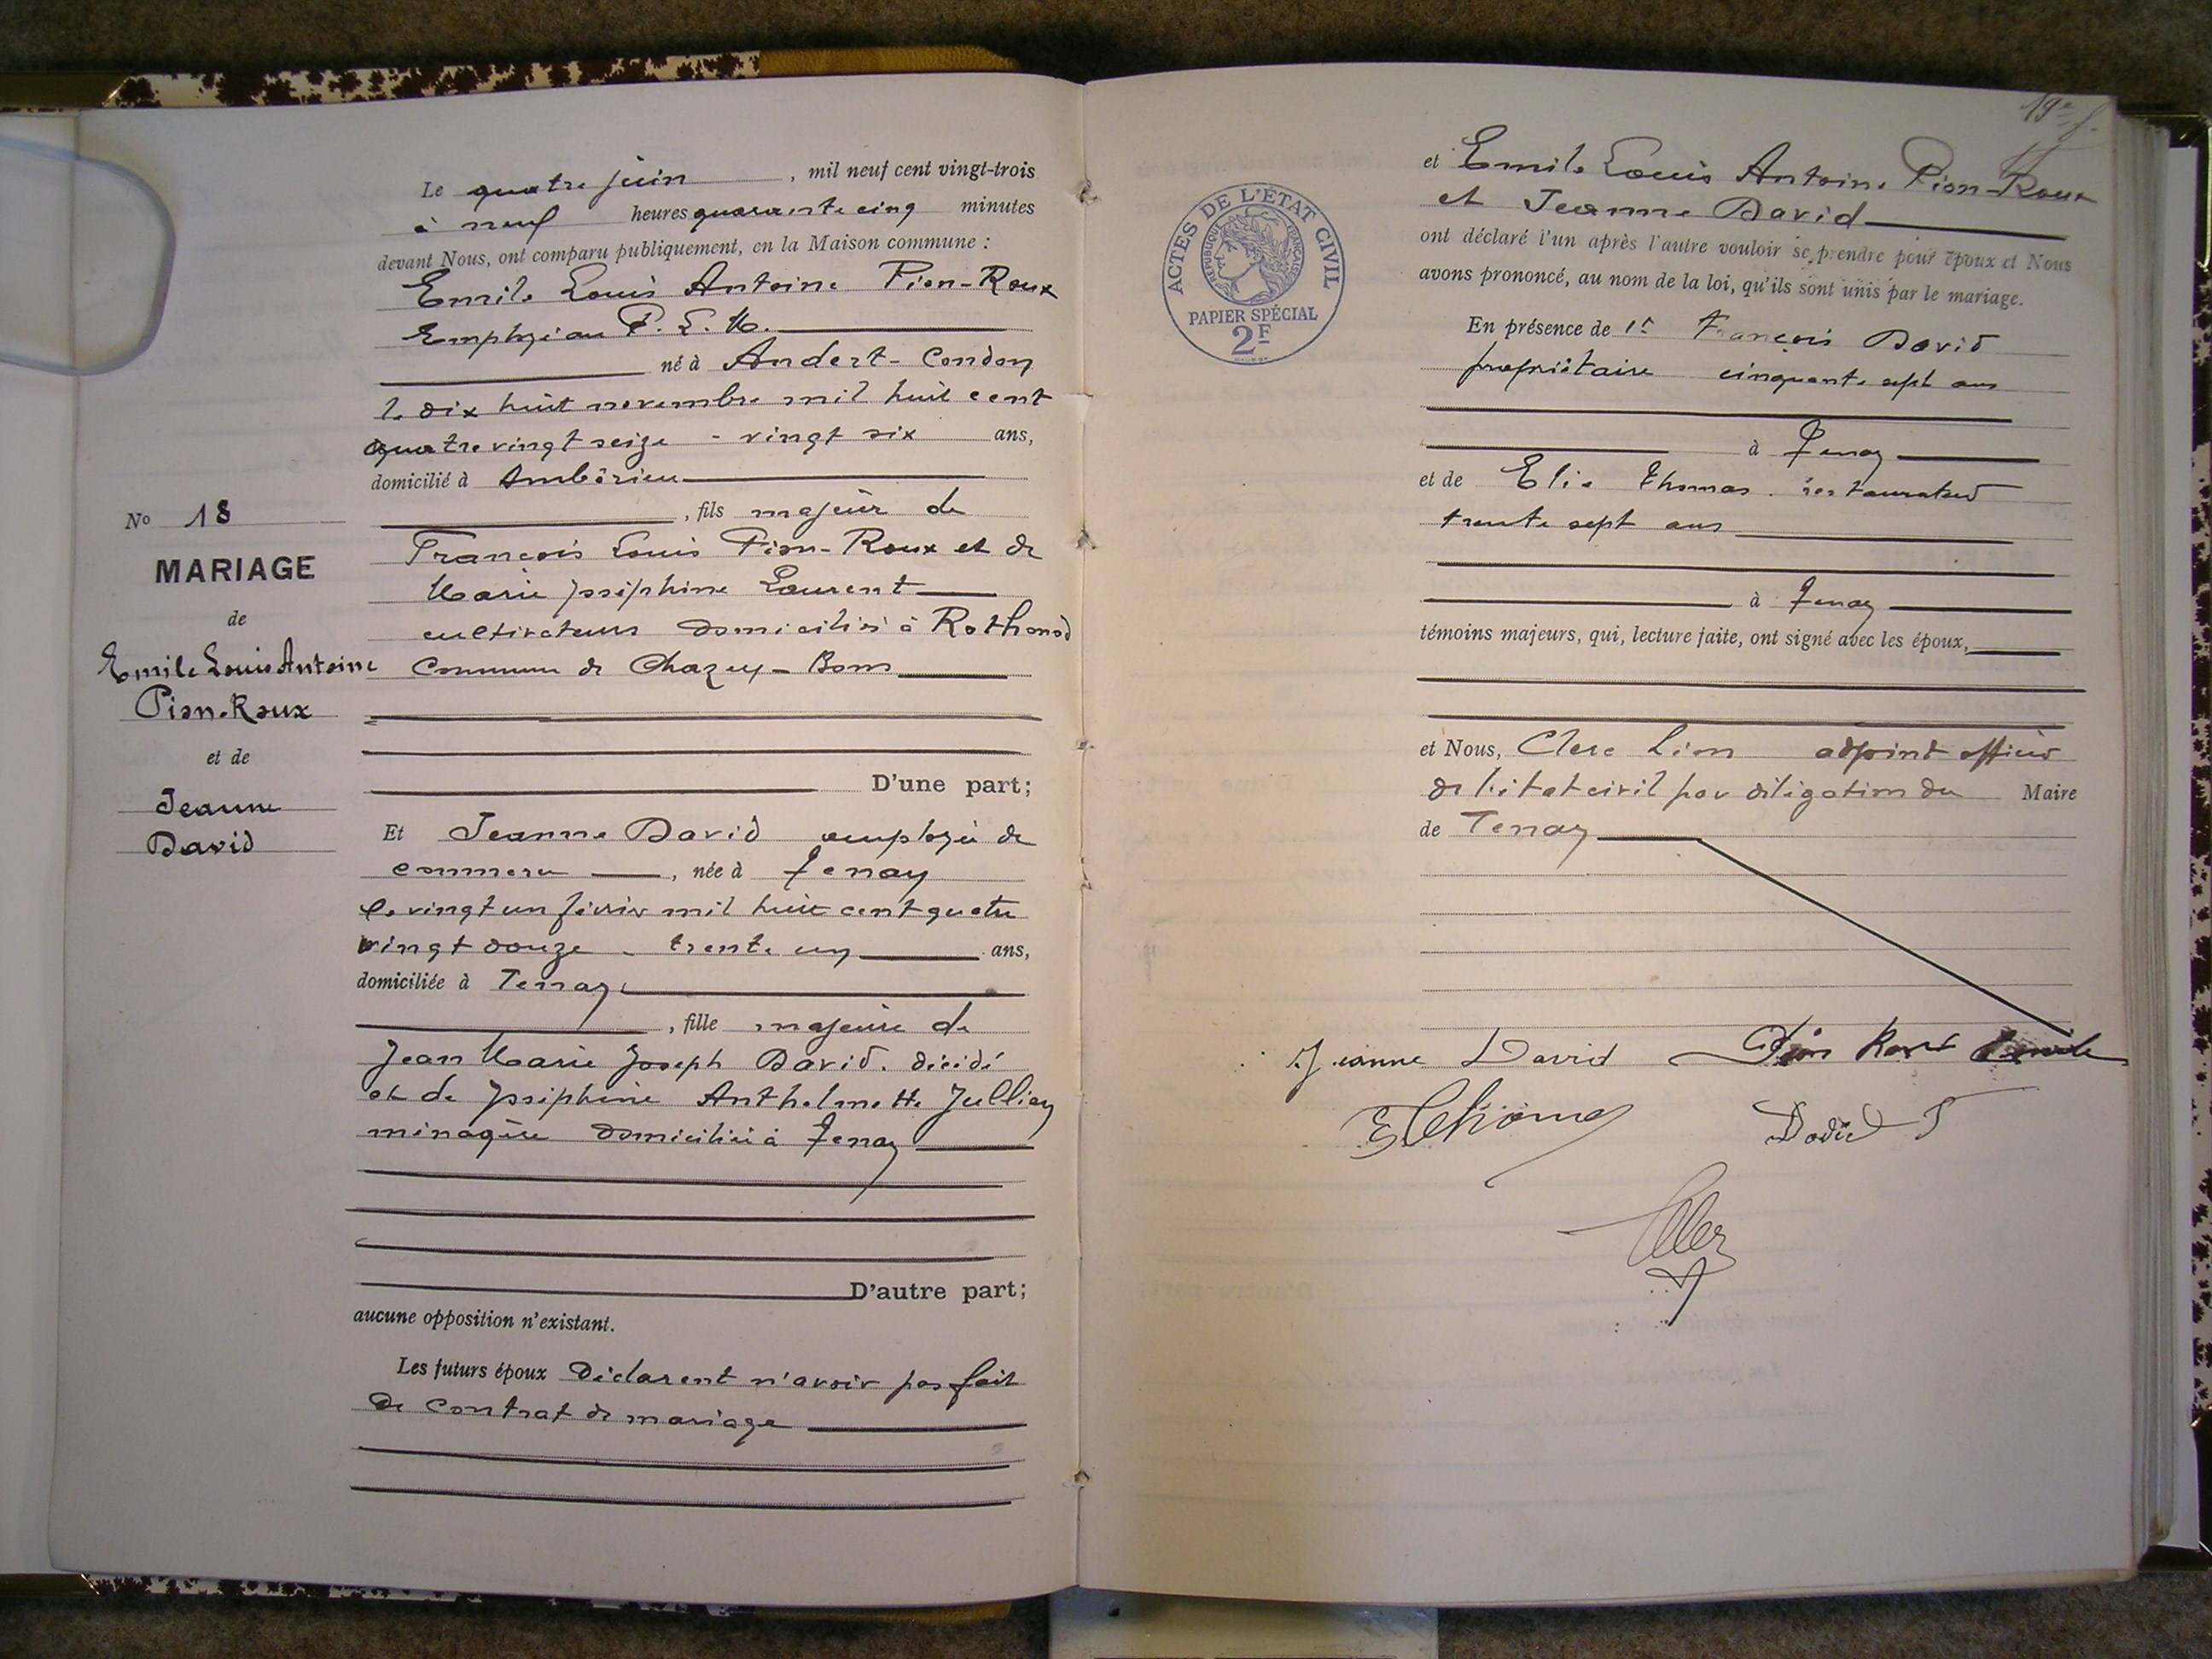 Le quatre juin, mil neuf cent vingt-trois
à neuf heures quarante cinq minutes
devant Nous, ont comparu publiquement, en la Maison commune :
Emile Louis Antoine Pion-Roux
Employé au P. L. M.
né à Andert-Condon
le dix huit novembre mil huit cent
quatre vingt seize - vingt six ans,
domicilié à Ambérieu
, fils majeur de
François Louis Pion-Roux et de
Marie Joséphine Laurent
cultivateurs domiciliés à Rothonod
Commune de Chazey-Bons
D'une part;
No 18
MARIAGE
de
Emile Louis Antoine
Pion-Roux
et de
Jeanne
David
Et Jeanne David employée de
commerce, née à Tenay
le vingt un février mil huit cent quatre
vingt douze - trente un ans,
domiciliée à Tenay
, fille majeure de
Jean Marie Joseph David. décédé
et de Joséphine Anthelmette Jullien
ménagère domiciliée à Tenay
D'autre part;
aucune opposition n'existant.
Les futurs époux déclarent n'avoir pas fait
de contrat de mariage
19e f.
ACTES DE L'ÉTAT CIVIL
RÉPUBLIQUE FRANÇAISE
PAPIER SPÉCIAL
2F
et Emile Louis Antoine Pion-Roux
et Jeanne David
ont déclaré l'un après l'autre vouloir se prendre pour époux et Nous
avons prononcé, au nom de la loi, qu'ils sont unis par le mariage.
En présence de François David
propriétaire cinquante sept ans
à Tenay
et de Elie Thomas. restaurateur
trente sept ans
à Tenay
témoins majeurs, qui, lecture faite, ont signé avec les époux,
et Nous, Clerc Léon adjoint officier
de l'état civil par délégation du Maire
de Tenay
Jeanne David Pion Roux Emile
E Thomas David F